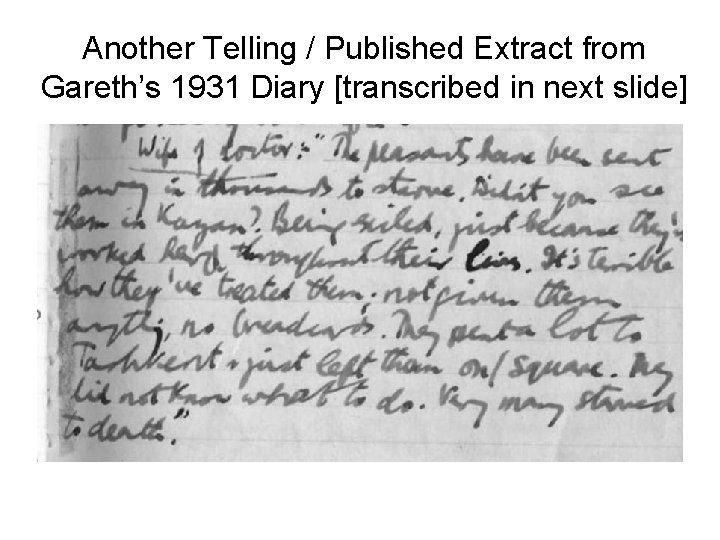 Another Telling / Published Extract from
Gareth's 1931 Diary [transcribed in next slide]
Wife of doctor: "The peasants have been sent
away in thousands to starve. Didn't you see
them in Kagan? Being exiled, just because they'd
worked hard throughout their lives. It's terrible
how they've treated them; not given them
anything, no breadcards. They sent a lot to
Tashkent & just left them on square. They
did not know what to do. Very many starved
to death."